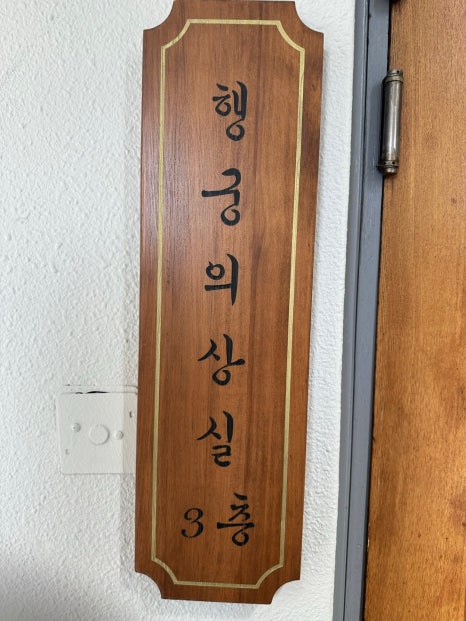 행궁의상실
3층